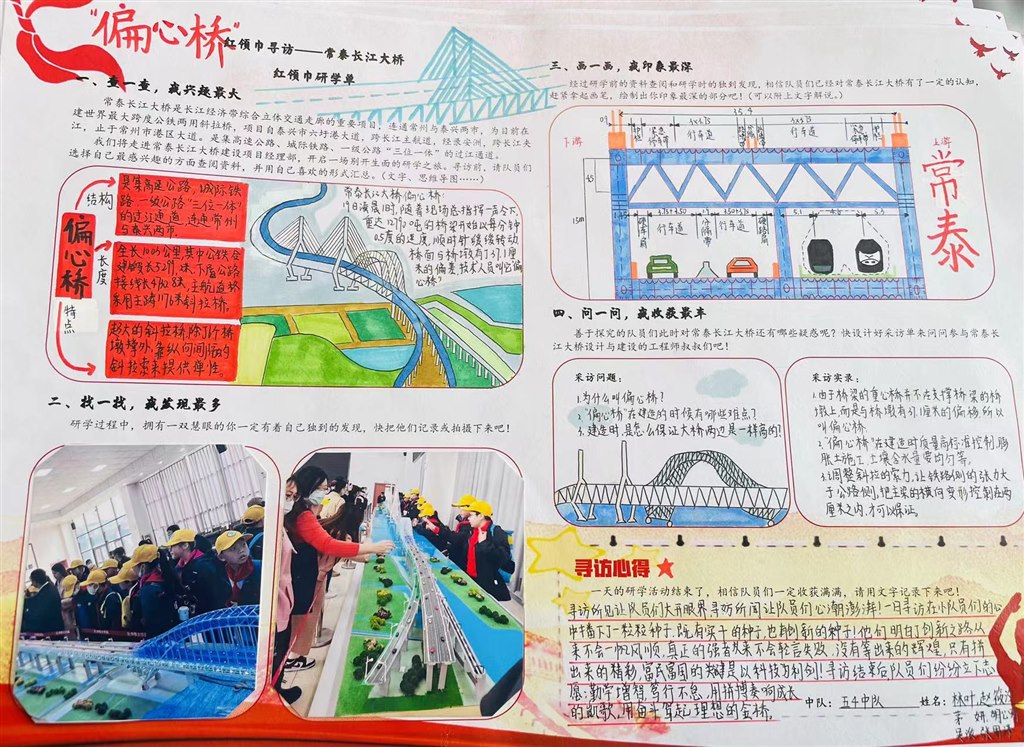 “偏心桥”
红领巾寻访——常泰长江大桥
红领巾研学单
一、查一查，我兴趣最大
常泰长江大桥是长江经济带综合立体交通走廊的重要项目，连通常州与泰兴两市，为目前在
建世界最大跨度公铁两用斜拉桥，项目自泰兴市六圩港大道，跨长江主航道，经录安洲，跨长江夹
江，止于常州市港区大道。是集高速公路、城际铁路、一级公路“三位一体”的过江通道。
我们将走进常泰长江大桥建设项目经理部，开启一场别开生面的研学之旅。寻访前，请队员们
选择自己最感兴趣的方面查阅资料，并用自己喜欢的形式汇总。（文字、思维导图……）
偏心桥
结构
长度
特点
是集高速公路，城际铁
路一级公路“三位一体”
的过江通道，连通常州
与泰兴两市。
全长10.03公里，其中公铁合
建
采用主跨1176米斜拉桥。
超大的斜拉桥，除了桥
墩撑外，靠纵向间隔的
斜拉索来提供弹性。
常泰长江大桥（偏心桥）
19日凌晨1时，随着现场总指挥一声令下，
的桥梁开始以每分钟
0.5度的速度，顺时针缓缓转动
桥面与桥墩有了3.1厘
米的偏差，技术人员叫它“偏
心桥”
二、找一找，我发现最多
研学过程中，拥有一双慧眼的你一定有着自己独到的发现，快把他们记录或拍摄下来吧！
三、画一画，我印象最深
经过研学前的资料查阅和研学时的独到发现，相信队员们已经对常泰长江大桥有了一定的认知，
赶紧拿起画笔，绘制出你印象最深的部分吧！（可以附上文字解说。）
35.4
下游
上游
行车道
行车道
15m
行车道
分隔带
行车道
常泰
四、问一问，我收获最丰
善于探究的队员们此时对常泰长江大桥还有哪些疑惑呢？快设计好采访单来问问参与常泰长
江大桥设计与建设的工程师叔叔们吧！
采访问题：
1.为什么叫偏心桥？
2.“偏心桥”在建造的时候有哪些难点？
3.建造时是怎么保证大桥两边是一样高的！
采访实录：
1.由于桥梁的重心桥并不在支撑桥梁的桥
墩上，而是与桥墩有3.1厘米的偏移所以
叫偏心桥。
2.“偏心桥”在建造时质量高标准控制，膨
胀土施工，土壤含水量要均匀等。
3.调整斜拉的索力，让铁路侧的张力大
于公路侧，把主梁的横向变形控制在两
厘米之内，才可以保证。
寻访心得
一天的研学活动结束了，相信队员们一定收获满满，请用文字记录下来吧！
寻访所见让队员们大开眼界，寻访所闻让队员们心潮澎湃！一日寻访在小队员们的心
中播下了一粒粒种子，既有实干的种子，也有创新的种子！他们明白了创新之路从
来不会一帆风顺，真正的强者从来不会轻言失败，没有等出来的辉煌，只有拼
出来的精彩，富民富国的关键是以科技为利剑！寻访结束后队员们纷纷立下志
愿：勤学增智，笃行不怠，用拼搏奏响成长
的凯歌，用奋斗筑起理想的金桥。
中队：五4中队
姓名：林叶、赵
茅妍